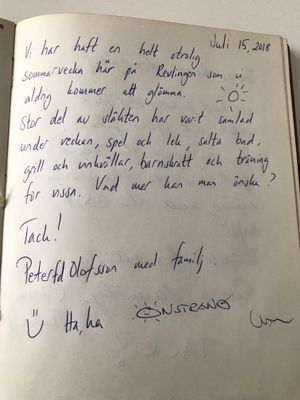 Juli 15, 2018
Vi har haft en helt otrolig
sommarvecka här på Revlingen som vi
aldrig kommer att glömma.
Stor del av släkten har varit samlad
under veckan, spel och lek, salta bad,
grill och vinkvällar, barnskratt och träning
för vissa. Vad mer kan man önska?
Tack!
Olofsson med familj
Ha, ha